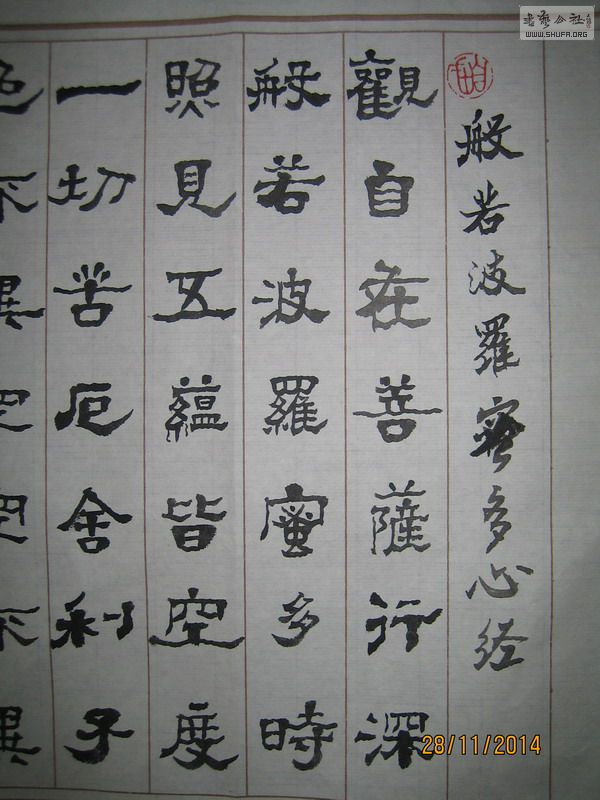 般若波羅蜜多心经
觀自在菩薩行深
般若波羅蜜多時
照見五蘊皆空度
一切苦厄舍利子
色不異空空不異
書藝公社
WWW.SHUFA.ORG
28/11/2014